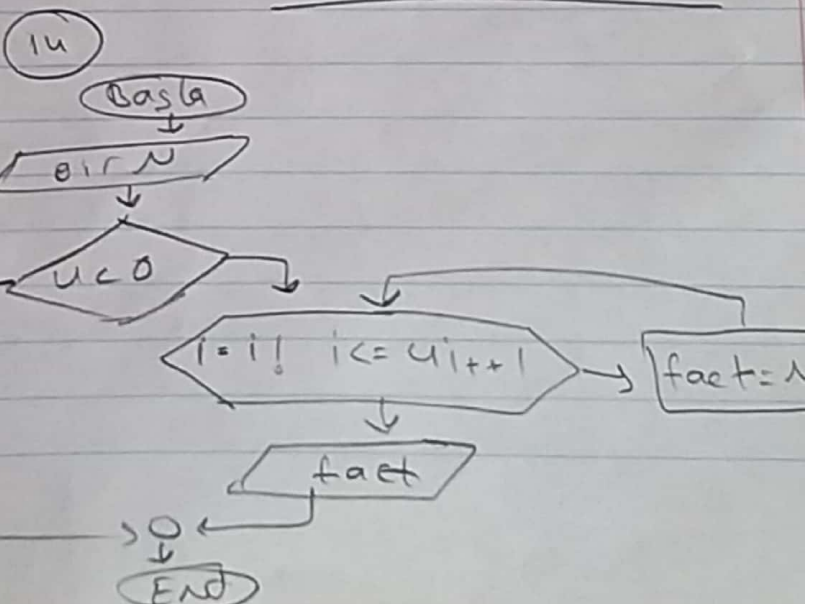 14
Başla
Gir N
n < 0
i = i! i <= n i++1
fact =
fact
End